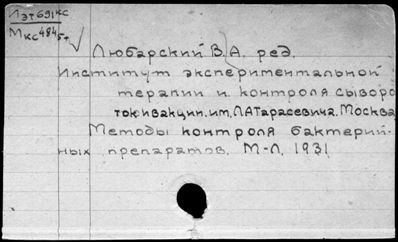 Лэт691кс
Мкс4845т
Любарский В.А. ред.
Институт экспериментальной
терапии и контроля сыворо
ток и вакцин им. Л.А Тарасевича. Москва
Методы контроля бактерий-
ных препаратов. М-Л, 1931